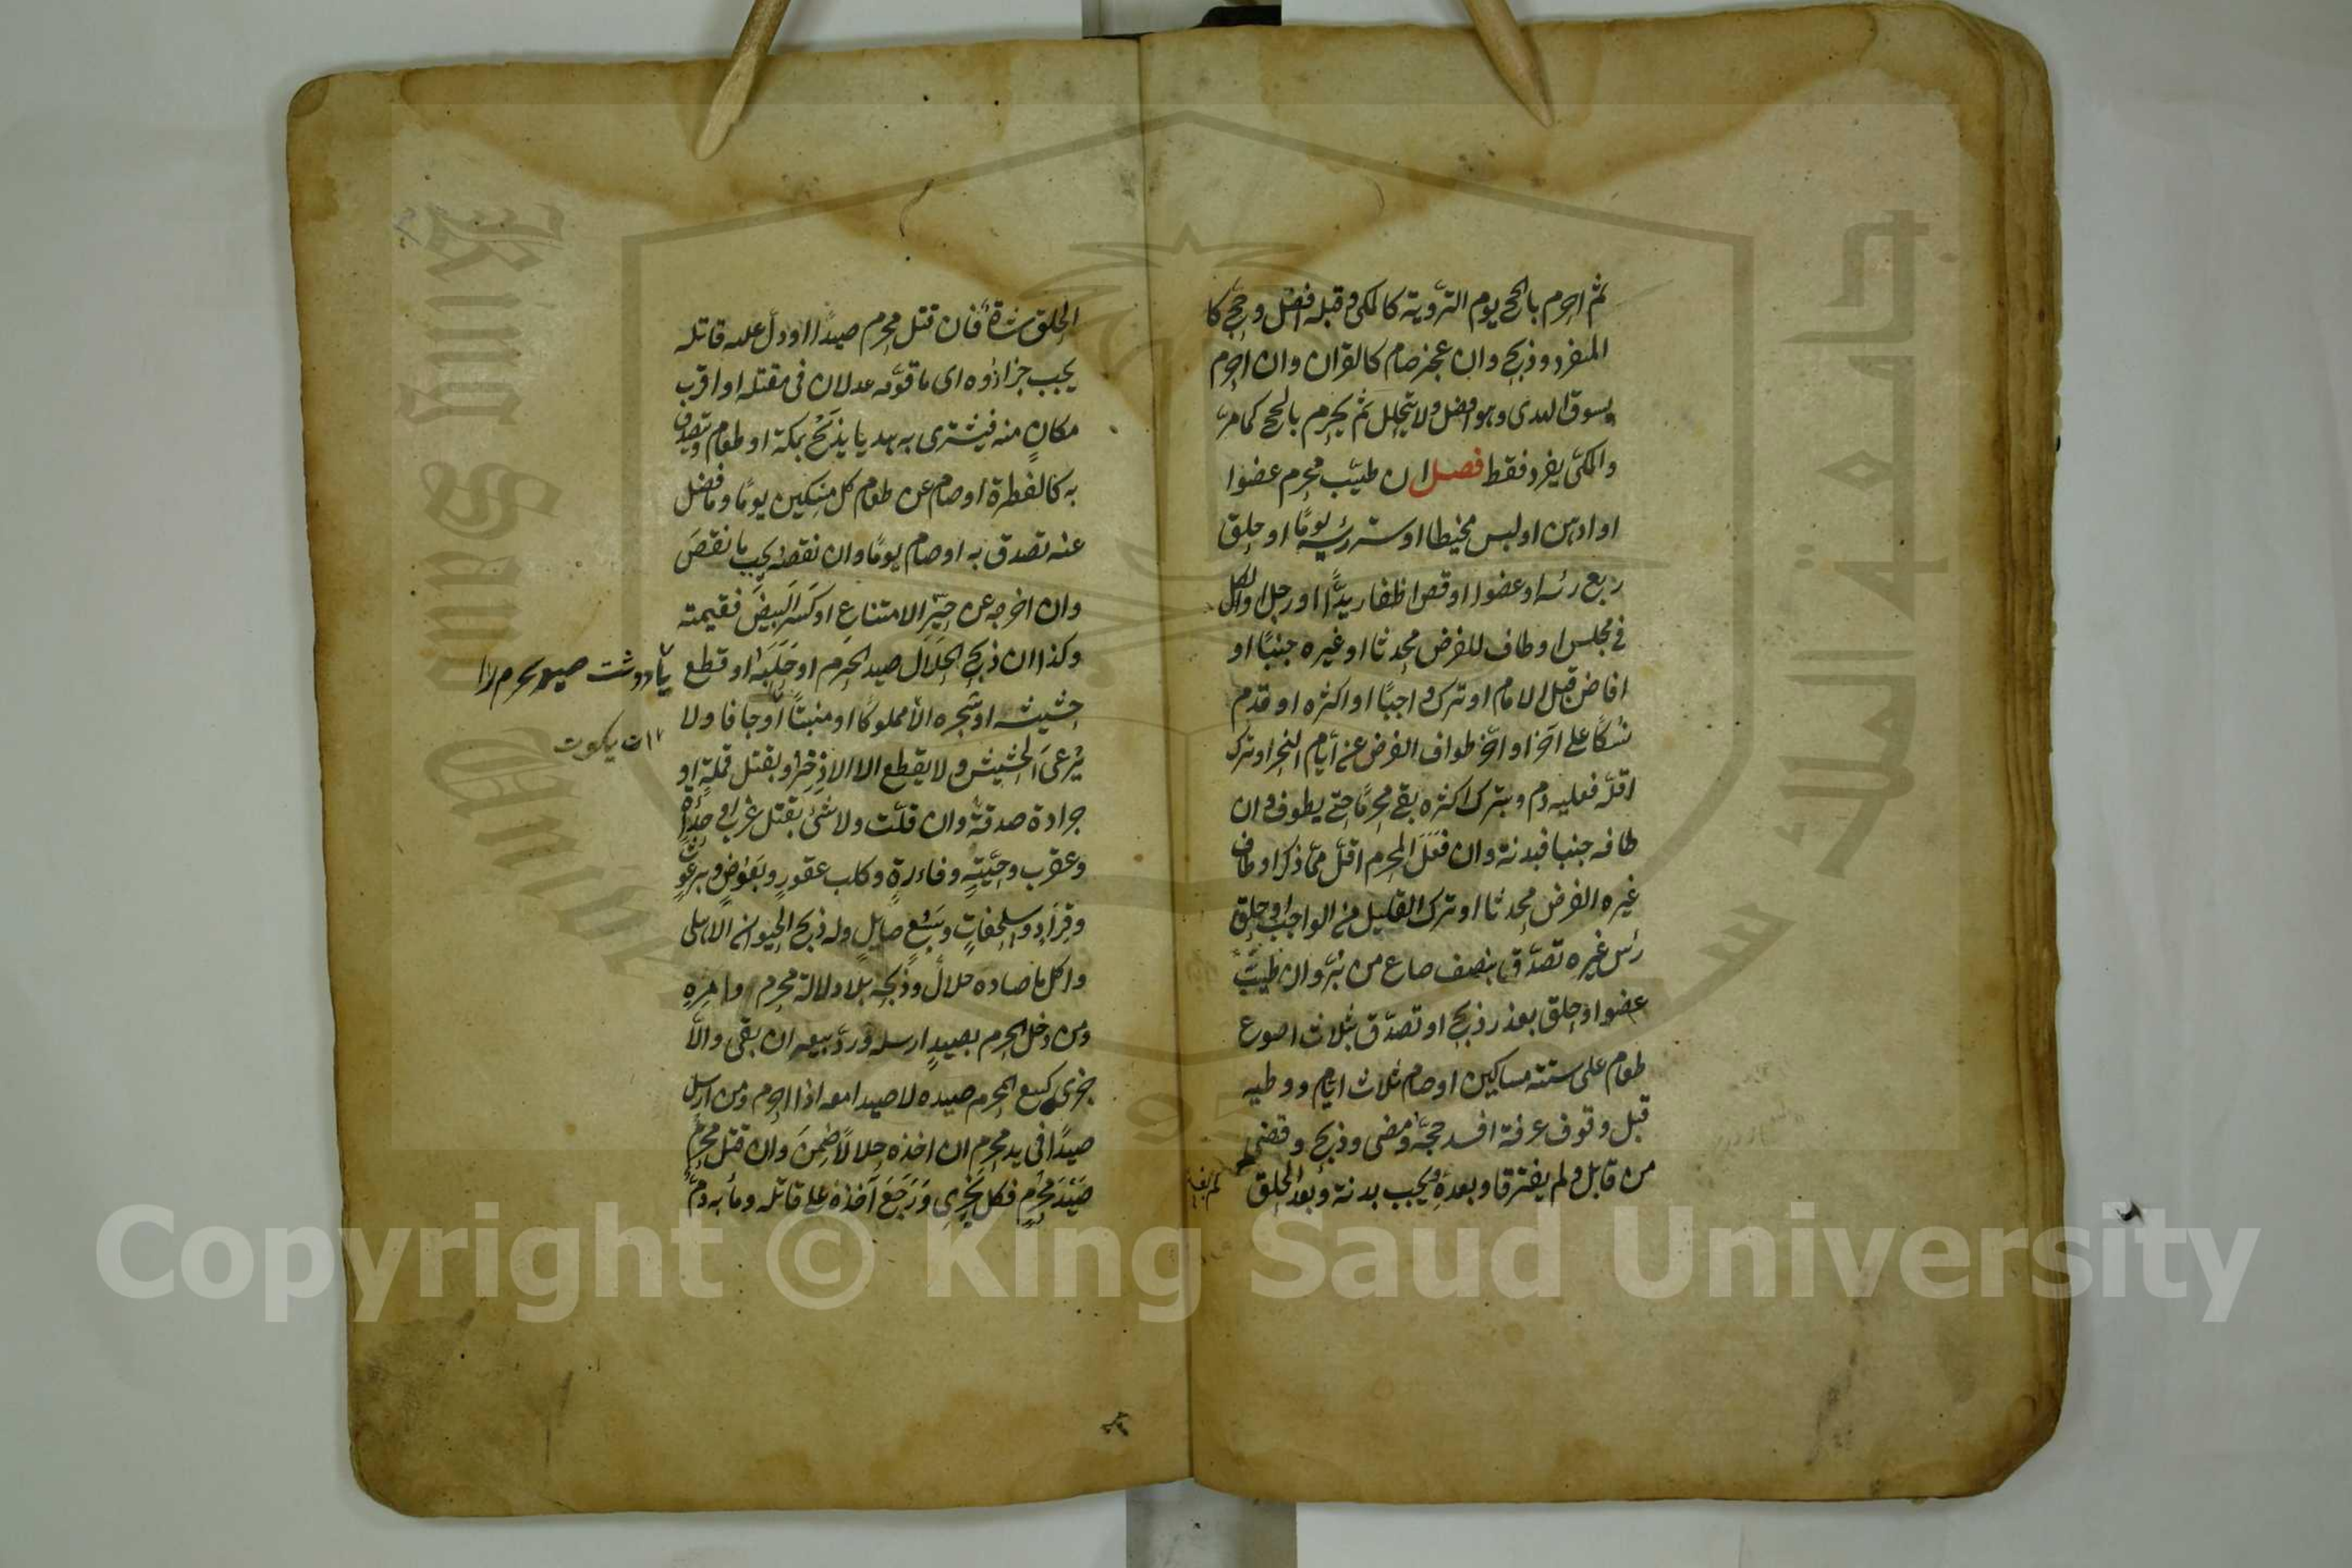 ثم احرم بالحج يوم التروية كالمكي وقبله افضل وحج كا
المفرد وذبح وان عجز صام كالقران وان احرم
وسوق الهدى وهو افضل ولا يتحلل ثم يحرم بالحج كما مر
والمكي يفرد فقط فصل ان طيب محرم عضوا
او ادهن او لبس مخيطا او ستر رأسه يوما او حلق
ربع رأسه او عضوا او قص اظفار يد او رجل او الكل
في مجلس او طاف للفرض محدثا او غيره جنبا او
افاض قبل الامام او ترك واجبا او اكثره او قدم
نسكا على آخر او اخر طواف الفرض عن ايام النحر او ترك
اقله فعليه دم وبترك اكثره بقي محرما حتى يطوف وان
طافه جنبا فبدنة وان فعل المحرم اقل مما ذكر او طاف
غيره الفرض محدثا او ترك القليل من الواجب او حلق
رأس غيره تصدق بنصف صاع من بر وان طيب
عضوا او حلق بعذر ذبح او تصدق بثلاث اصوع
طعام على ستة مساكين او صام ثلاث ايام ووطيه
قبل وقوف عرفة افسد حجه ومضى وذبح وقضى
من قابل ولم يفترقا وبعده يجب بدنة وبعد الحلق
الحلق شاة فان قتل محرم صيدا او دل عليه قاتله
يجب جزاؤه اى ما قومه عدلان في مقتله او اقرب
مكان منه فيشترى به هديا يذبح بمكة او طعام وتصدق
به كالفطرة او صام عن طعام كل مسكين يوما وما فضل
عنه تصدق به او صام يوما وان نقصه يجب ما نقص
وان اخرجه عن حيز الامتناع او كسر البيض فقيمته
وكذا ان ذبح الحلال صيد الحرم او حلبه او قطع
حشيشه او شجره الا مملوكا او منبتا او جافا ولا
يرعى الحشيش ولا يقطع الا الاذخر وبقتل قملة او
جرادة صدقة وان قلت ولا شئ بقتل غراب وحدأة
وعقرب وحية وفاءرة وكلب عقور وبعوض وبرغوث
وقراد وسلحفات وسبع صايل وله ذبح الحيوان الاهلى
واكل ما صاده حلال وذبحه بلا دلالة محرم وامره
ومن دخل الحرم بصيد ارسله ورد بيعه ان بقى والا
جزى كبيع المحرم صيده لا صيدا معه اذا احرم ومن ارسل
صيدا في يد محرم ان اخذه حلالا ضمن وان قتل محرم
صيد محرم فكل يجزى ورجع آخذه على قاتله وما به دم
Copyright © King Saud University